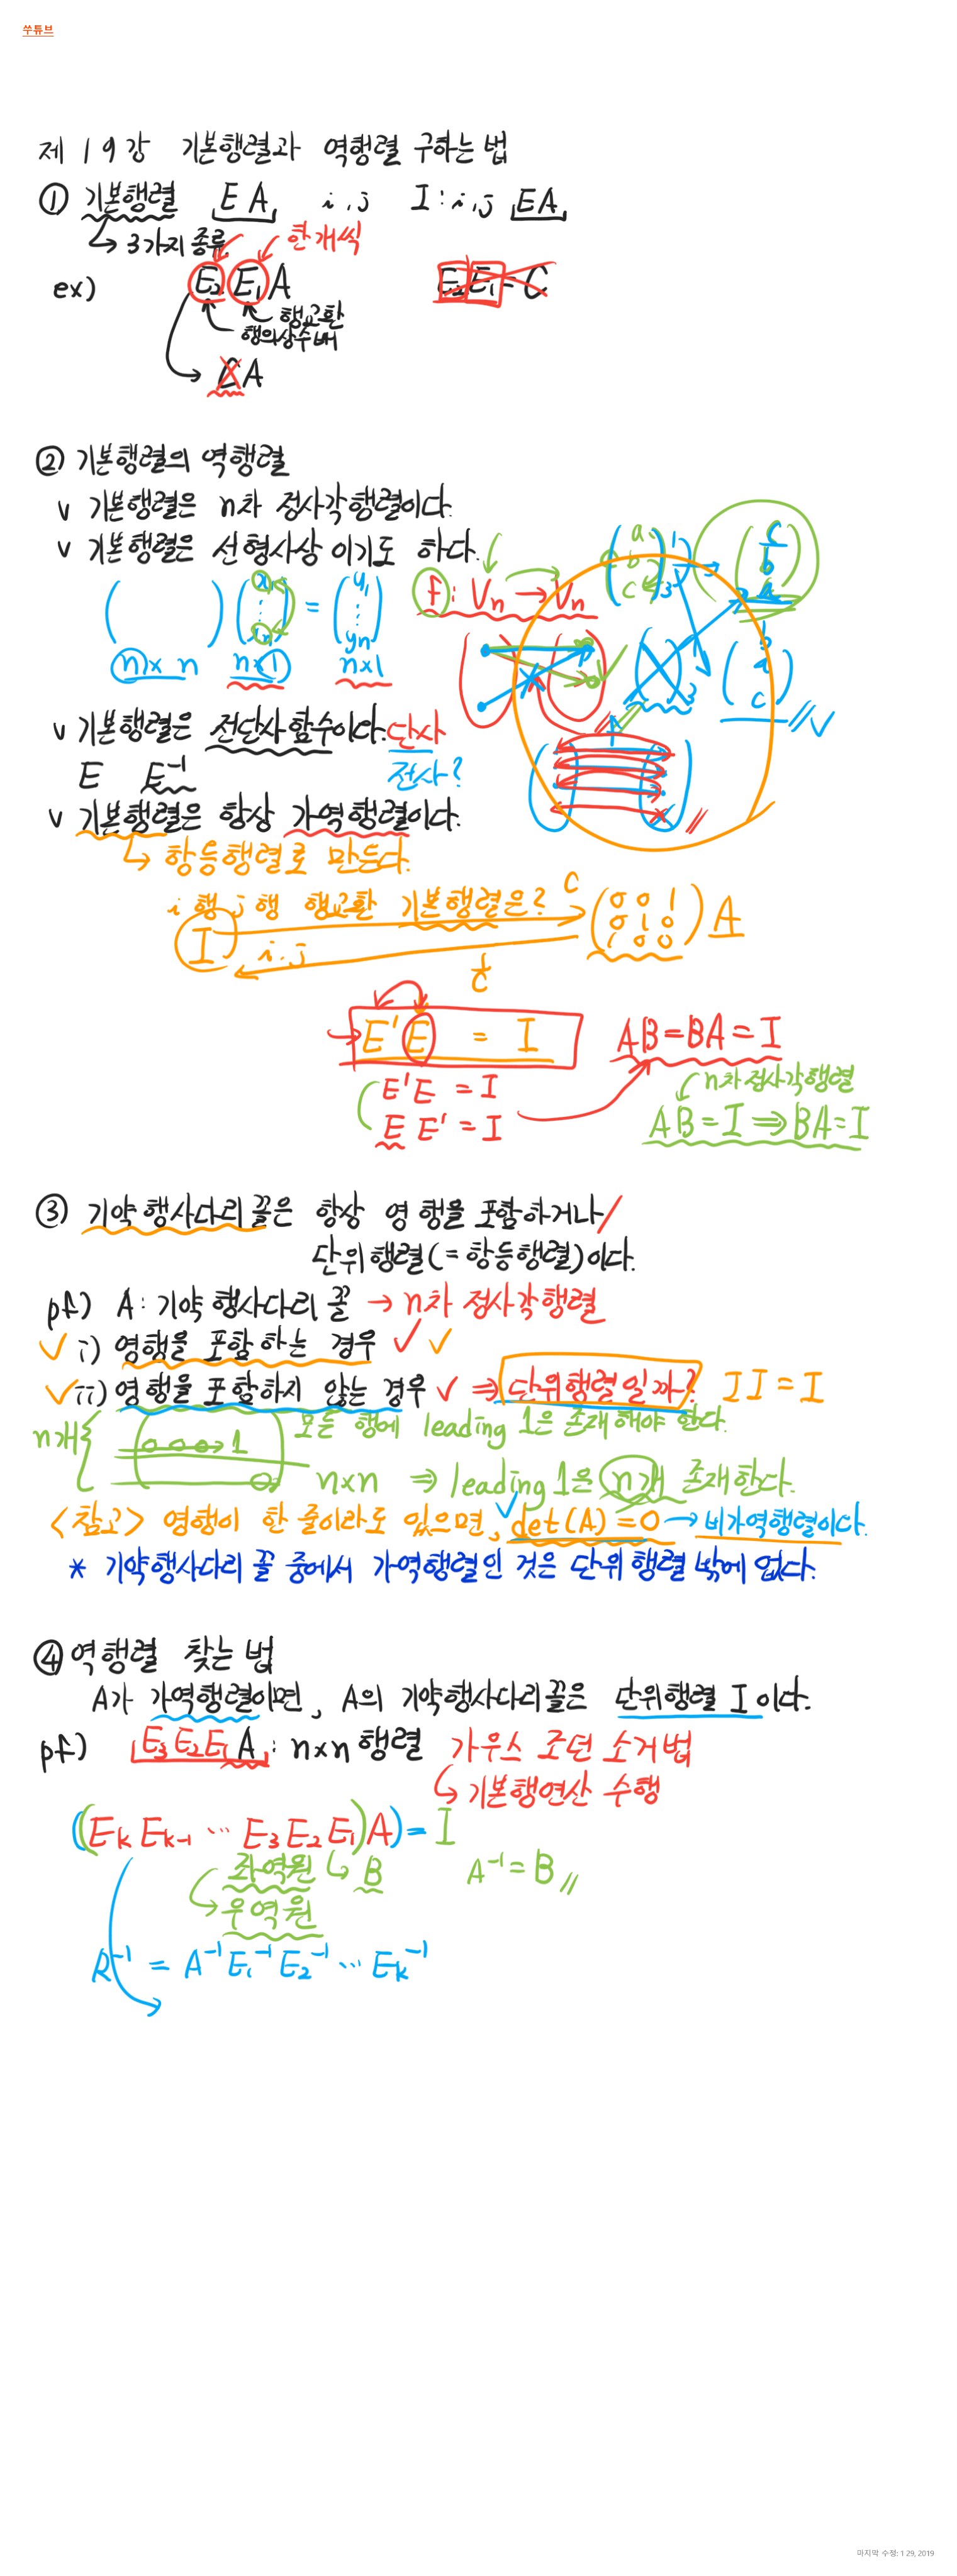 쑤튜브
제 19강 기본행렬과 역행렬 구하는 법
① 기본행렬 EA i,j I:i,j EA
↳ 3가지 종류 한개씩
ex) E₂E₁A E₂E₁=C
행교환
행의상수배
CA
② 기본행렬의 역행렬
v 기본행렬은 n차 정사각행렬이다.
v 기본행렬은 선형사상 이기도 하다.
( ) (x₁ ⋮ xₙ) = (y₁ ⋮ yₙ) f: Vₙ → Vₙ
n×n n×1 n×1
(a b c) 1,3 → (c b a)
3 (b a c)
v 기본행렬은 전단사함수이다. 단사
E E⁻¹ 전사?
v 기본행렬은 항상 가역행렬이다.
↳ 항등행렬로 만든다.
i행 j행 행교환 기본행렬은? c
I i.j (0 0 1 0 1 0 1 0 0) A
1/c
E'E = I AB=BA=I
E'E = I n차 정사각행렬
E E' = I AB=I ⇒ BA=I
③ 기약 행사다리 꼴은 항상 영 행을 포함하거나
단위행렬(=항등행렬)이다.
pf) A: 기약 행사다리 꼴 → n차 정사각행렬
i) 영행을 포함 하는 경우
ii) 영행을 포함하지 않는 경우 ⇒ 단위행렬일까? II = I
n개{ 0 0 0 1 모든 행에 leading 1은 존재해야 한다.
0 n×n ⇒ leading 1은 n개 존재한다.
<참고> 영행이 한 줄이라도 있으면, det(A)=0 → 비가역행렬이다.
* 기약행사다리 꼴 중에서 가역행렬인 것은 단위 행렬 밖에 없다.
④ 역행렬 찾는 법
A가 가역행렬이면, A의 기약행사다리꼴은 단위행렬 I 이다.
pf) E₃E₂E₁A : n×n 행렬 가우스 조던 소거법
↳ 기본행연산 수행
((Eₖ Eₖ₋₁ ⋯ E₃E₂E₁)A) = I
좌역원 ↳ B A⁻¹ = B
↳ 우역원
R⁻¹ = A⁻¹E₁⁻¹E₂⁻¹⋯Eₖ⁻¹
마지막 수정: 1 29, 2019